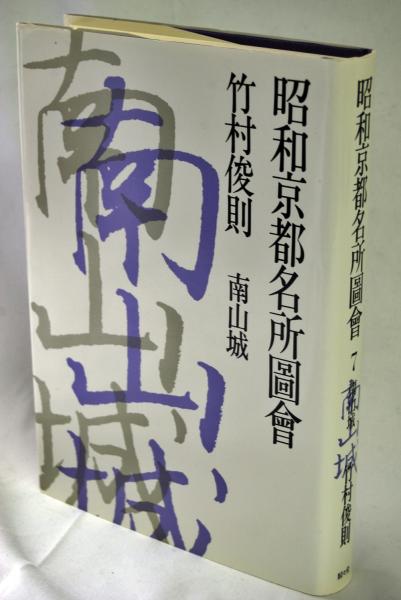 昭和京都名所圖會
竹村俊則
南山城
南山城
南山城
昭和京都名所圖會
7
南山城
竹村俊則